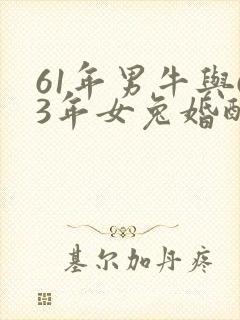 61年男牛與
3年女兔婚
基尔加丹疼